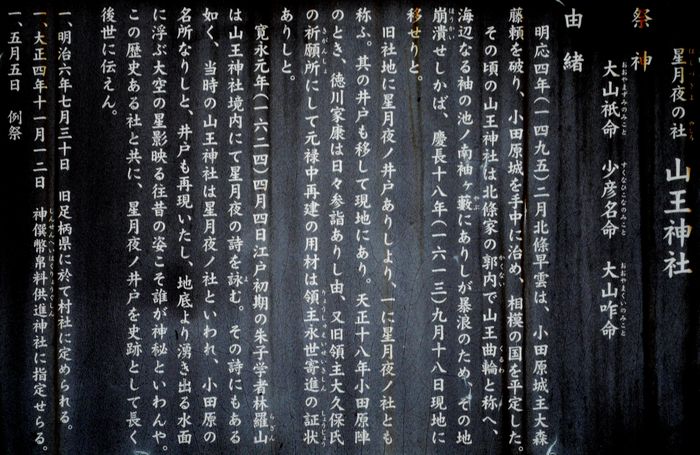 星月夜の社 山王神社
祭神
大山祇命 少彦名命 大山咋命
おおやまずみのみこと すくなひこなのみこと おおやまくいのみこと
由緒
明応四年(一四九五)二月北條早雲は、小田原城主大森
藤頼を破り、小田原城を手中に治め、相模の国を平定した。
その頃の山王神社は北條家の郭内で山王曲輪と称へ、
海辺なる袖の池ノ南袖ヶ藪にありしが暴浪のため、その地
崩潰せしかば、慶長十八年(一六一三)九月十八日現地に
移せりと。
旧社地に星月夜ノ井戸ありしより、一に星月夜ノ社とも
称ふ。其の井戸も移して現地にあり。天正十八年小田原陣
のとき、徳川家康は日々参詣ありし由、又旧領主大久保氏
の祈願所にして元禄中再建の用材は領主永世寄進の証状
ありしと。
寛永元年(一六二四)四月四日江戸初期の朱子学者林羅山
は山王神社境内にて星月夜の詩を詠む。その詩にもある
如く、当時の山王神社は星月夜ノ社といわれ、小田原の
名所なりしと、井戸も再現いたし、地底より湧き出る水面
に浮ぶ大空の星影映る往昔の姿こそ誰が神秘といわんや。
この歴史ある社と共に、星月夜ノ井戸を史跡として長く
後世に伝えん。
一、明治六年七月三十日 旧足柄県に於て村社に定められる。
一、大正四年十一月一二日 神饌幣帛料供進神社に指定せらる。
一、五月五日 例祭